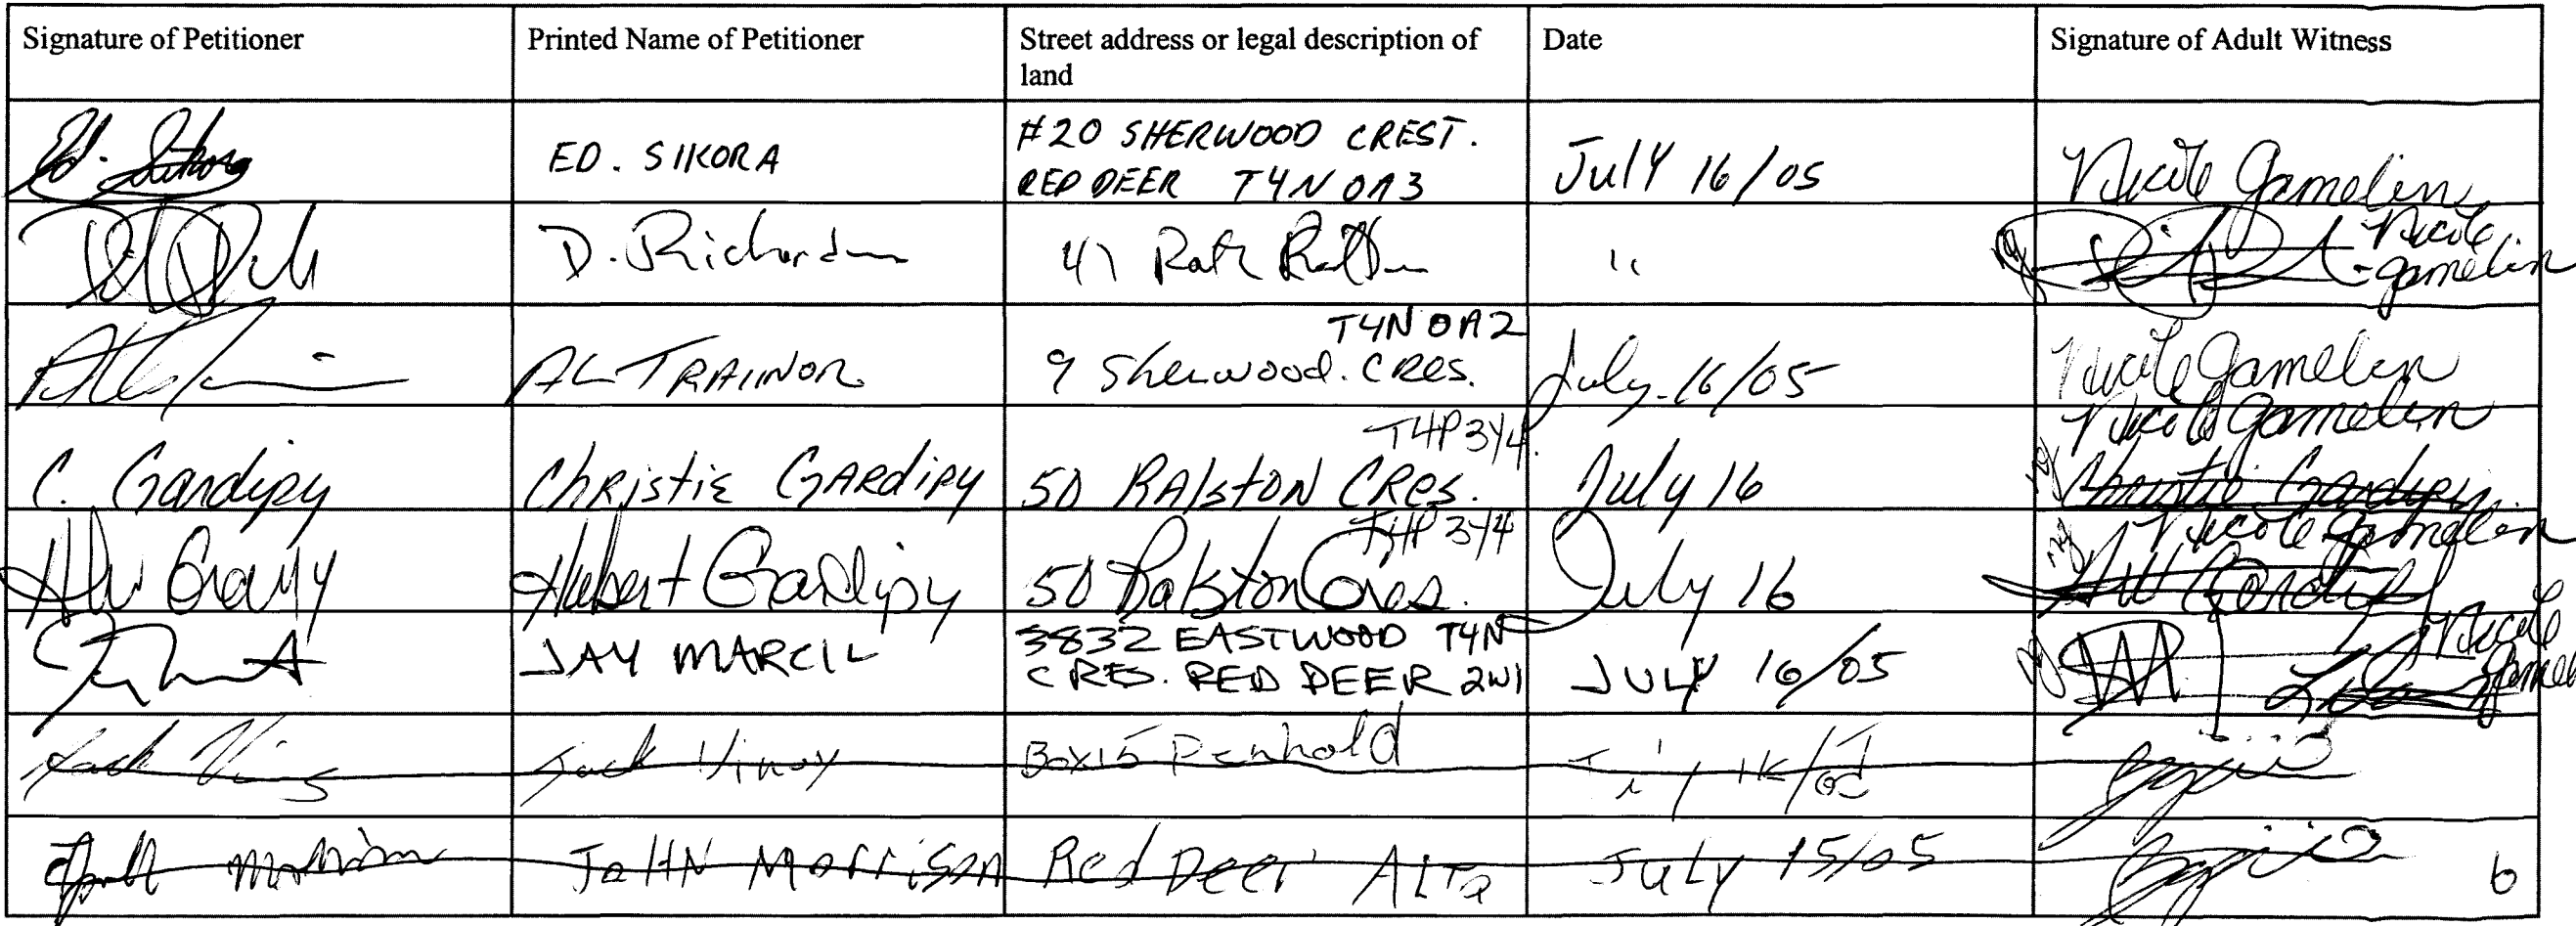 Signature of Petitioner
Printed Name of Petitioner
Street address or legal description of
land
Date
Signature of Adult Witness
Ed. Sikora
ED. SIKORA
#20 SHERWOOD CREST.
RED DEER T4N 0A3
JulY 16/05
Nicole Gamelin
D. Richardson
47
"
Nicole
gamelin
AL TRAINOR
T4N 0A2
9 Sherwood. CRES.
July 16/05
Nicole Gamelin
C. Gardipy
ChRistiE GARdiPY
T4P 3Y4
50 RAlstON CRes.
July 16
Nicole Gamelin
Christie Gardipy
Hubert Gardipy
T4P 3Y4
50 Ralston Cres.
July 16
Nicole Gamelin
JAY MARCIL
3832 EASTWOOD T4N
CRES. RED DEER 2W1
JULY 16/05
Nicole
Jack
Box 15 Penhold
JoHN MorrisoN
Red Deer ALTa
JuLy 15/05
6